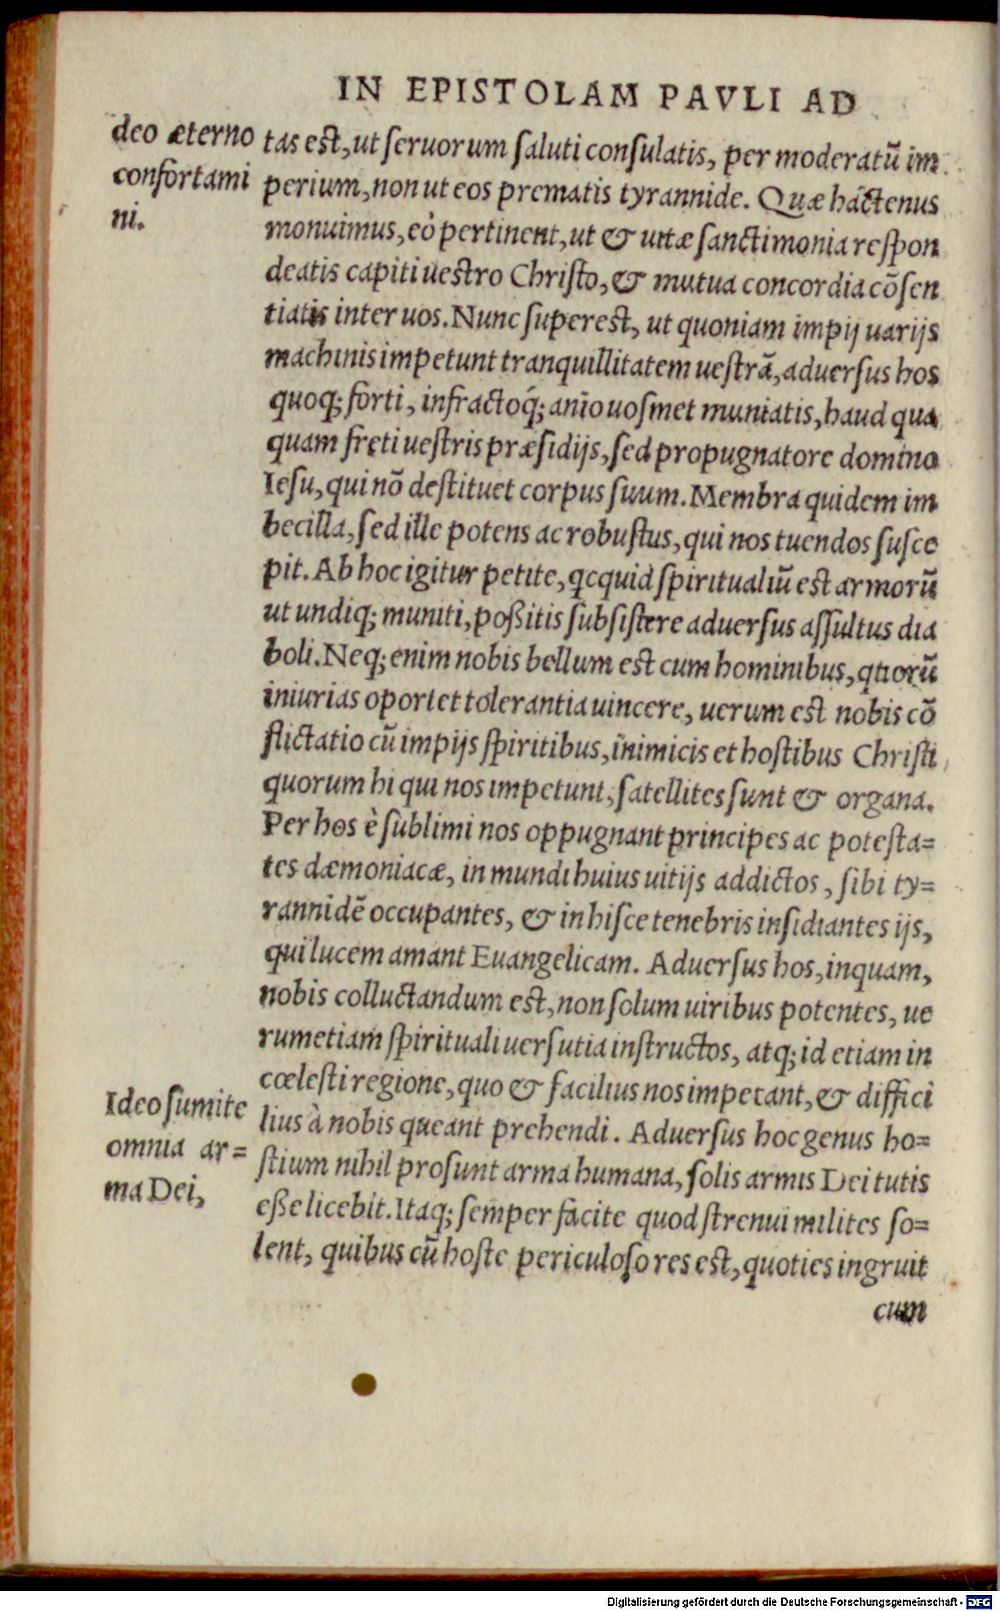 IN EPISTOLAM PAVLI AD
deo æterno
confortami
ni.
tas est, ut seruorum saluti consulatis, per moderatũ im
perium, non ut eos prematis tyrannide. Quæ háctenus
monuimus, eò pertinent, ut & uitæ sanctimonia respon
deatis capiti uestro Christo, & mutua concordia cõsen
tiatis inter uos. Nunc superest, ut quoniam impij uarijs
machinis impetunt tranquillitatem uestrã, aduersus hos
quoq; forti, infractoq́; anĩo uosmet muniatis, haud qua
quam fręti uestris præsidijs, sed propugnatore domino
Iesu, qui nõ destituet corpus suum. Membra quidem im
becilla, sed ille potens ac robustus, qui nos tuendos susce
pit. Ab hoc igitur petite, qcquid spiritualiũ est armorũ
ut undiq; muniti, poßitis subsistere aduersus assultus dia
boli. Neq; enim nobis bellum est cum hominibus, quorũ
iniurias oportet tolerantia uincere, uerum est nobis cõ
flictatio cũ impijs spiritibus, inimicis et hostibus Christi
quorum hi qui nos impetunt, satellites sunt & organa.
Per hos è sublimi nos oppugnant principes ac potesta=
tes dæmoniacæ, in mundi huius uitijs addictos, sibi ty=
rannidẽ occupantes, & in hisce tenebris insidiantes ijs,
qui lucem amant Euangelicam. Aduersus hos, inquam,
nobis colluctandum est, non solum uiribus potentes, ue
rumetiam spirituali uersutia instructos, atq; id etiam in
cœlesti regione, quo & facilius nos impetant, & diffici
lius à nobis queant prehendi. Aduersus hoc genus ho=
stium nihil prosunt arma humana, solis armis Dei tutis
eße licebit. Itaq; semper facite quod strenui milites so=
lent, quibus cũ hoste periculoso res est, quoties ingruit
Ideo sumite
omnia ar=
ma Dei,
cum
Digitalisierung gefördert durch die Deutsche Forschungsgemeinschaft - DFG